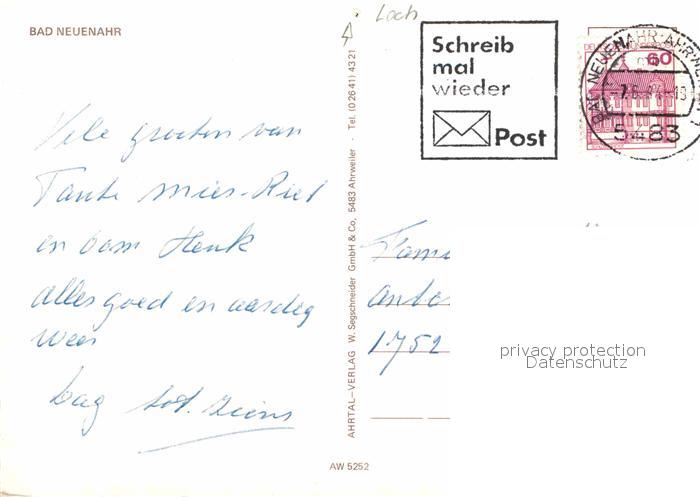 BAD NEUENAHR
Loch
Schreib
mal
wieder
Post
60
BAD NEUENAHR-AHRW
5483
Vele groeten van
Tante Mies-Riet
en oom Henk
alles goed en aardig
weer
dag tot ziens
AHRTAL-VERLAG W. Segschneider GmbH & Co, 5483 Ahrweiler · Tel. (02641) 4321
Fami
1752
privacy protection
Datenschutz
AW 5252